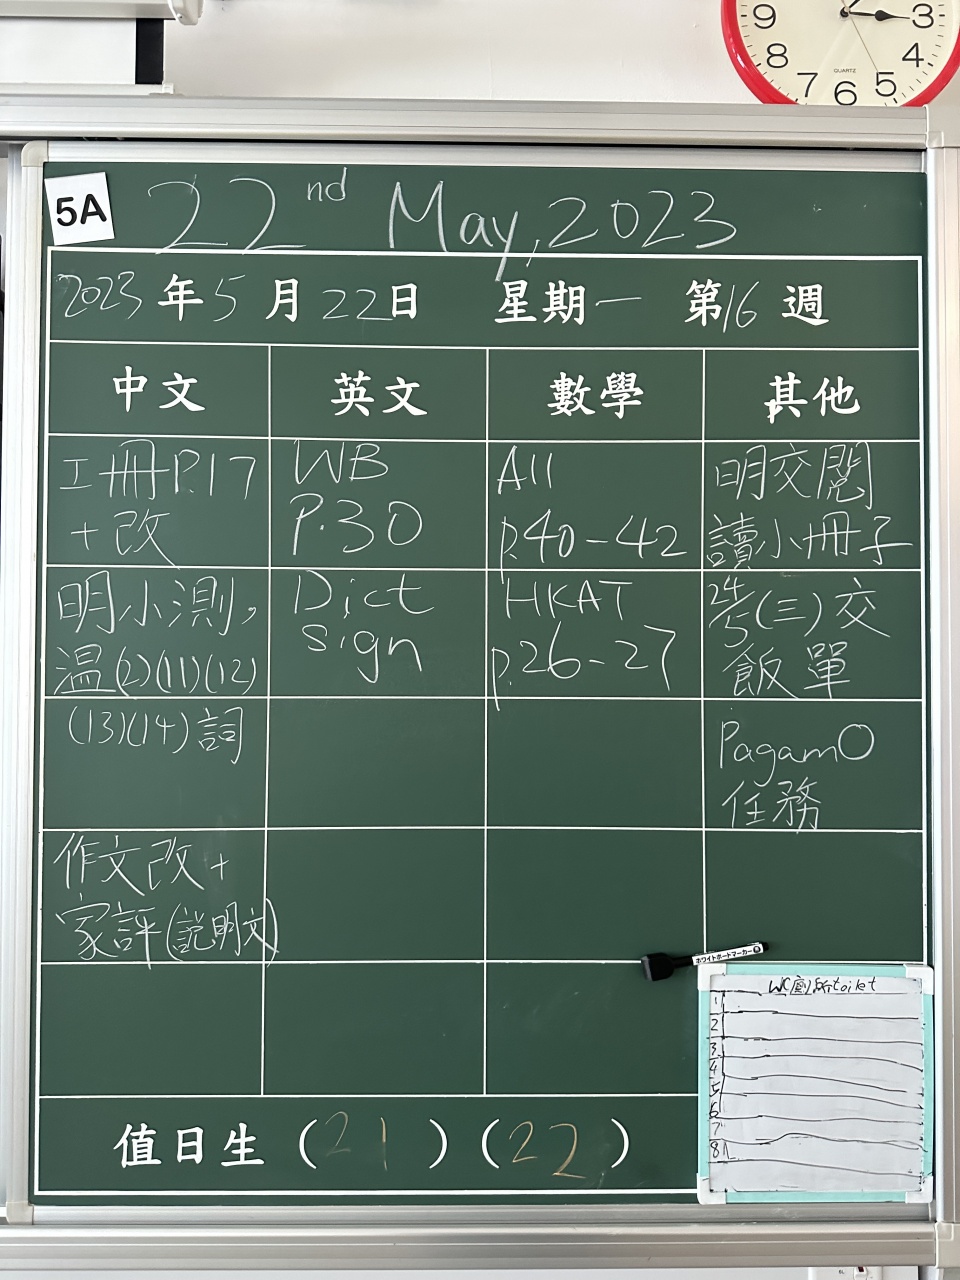 9 3 8 4 7 6 5
QUARTZ
5A
22nd May, 2023
2023年5月22日 星期一 第16週
中文 英文 數學 其他
工冊P.17
+改
WB
P.30
All
p.40-42
明交閱
讀小冊子
明小測，
温(2)(11)(12)
Dict
sign
HKAT
p.26-27
24/5(三)交
飯單
(13)(14)詞
PagamO
任務
作文改+
家評(説明文)
ホワイトボードマーカー
WC廁所toilet
1
2
3
4
5
6
7
8
值日生(21)(22)